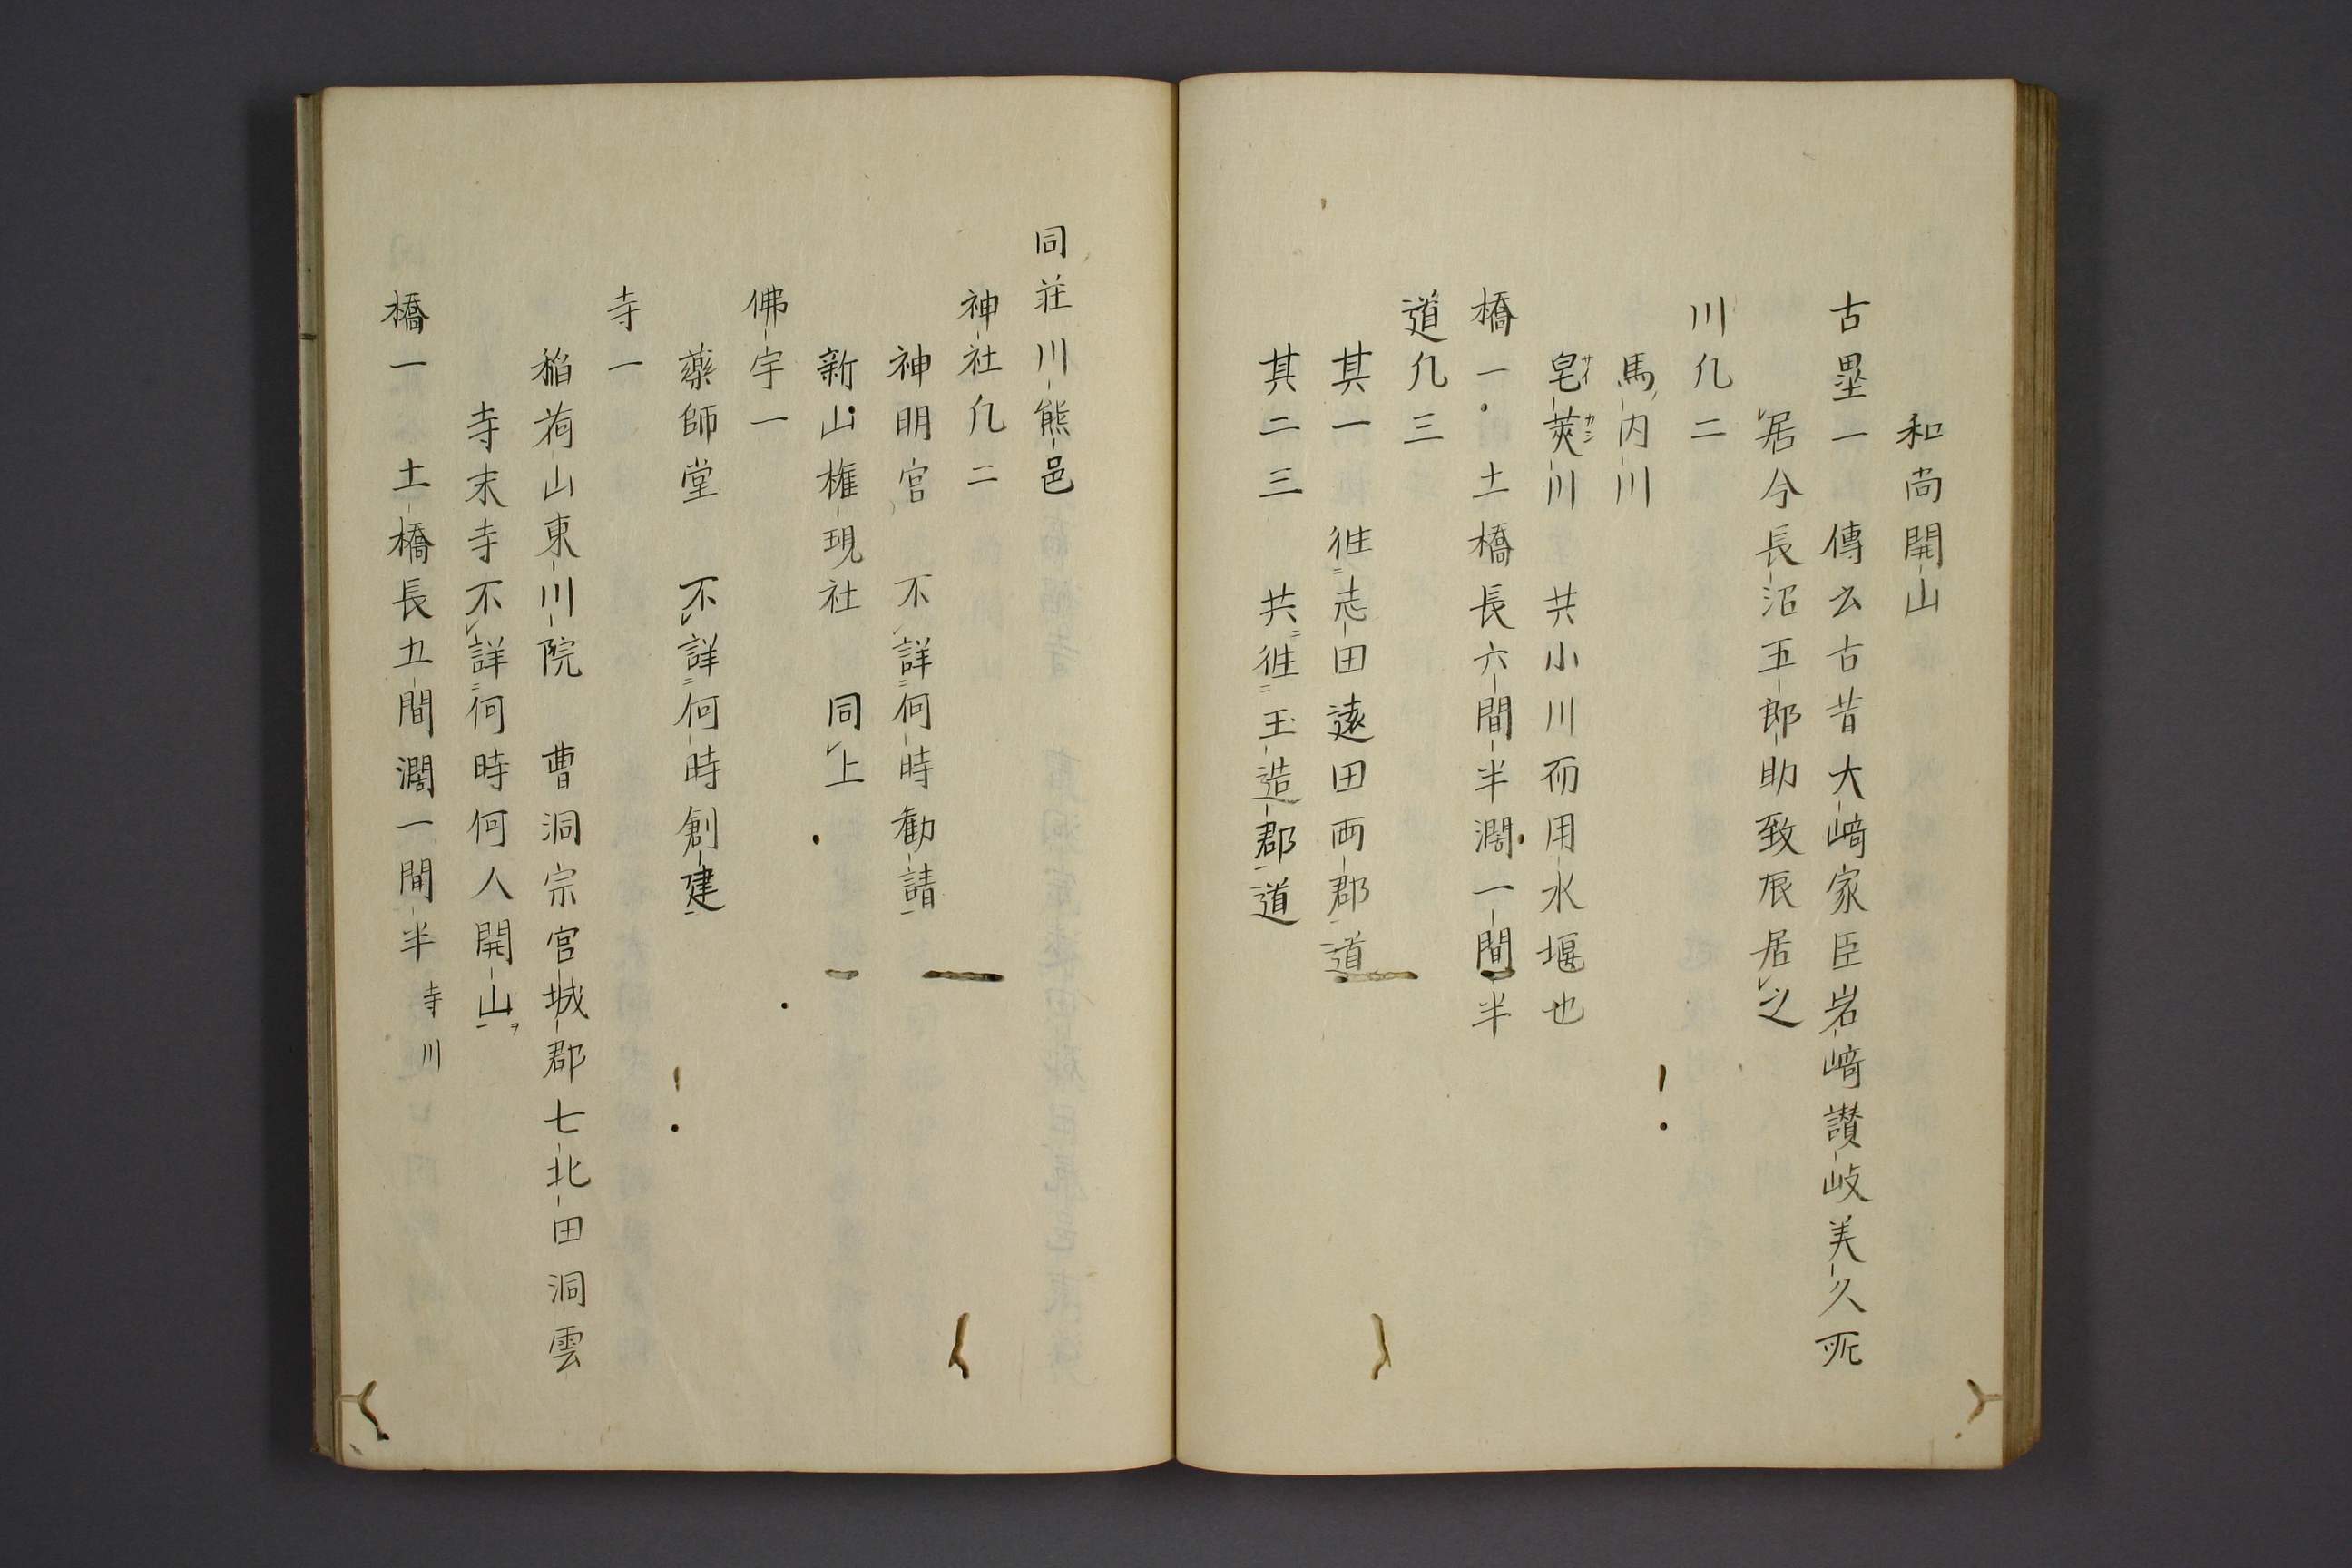 和尚開山
古塁一 傳云古昔大﨑家臣岩﨑讃岐美久所
居今長沼五郎助致辰居之
川凢二
馬内川
皂莢川 共小川而用水堰也
サイ カシ
橋一 土橋長六間半濶一間半
道凢三
其一 徃志田遠田両郡道
其二三 共徃玉造郡道
同荘川熊邑
神社凢二
神明宮 不詳何時勧請
新山権現社 同上
佛宇一
薬師堂 不詳何時創建
寺一
稲荷山東川院 曹洞宗宮城郡七北田洞雲
寺末寺不詳何時何人開山
橋一 土橋長五間濶一間半 寺川